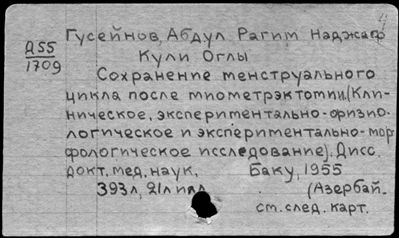 Гусейнов, Абдул Рагим Наджаф
Д55
1709
Кули Оглы
Сохранение менструального
цикла после миометрэктомии.(Кли-
ническое, экспериментально-физио-
логическое и экспериментально-мор-
фологическое исследование). Дисс.
докт. мед. наук. Баку, 1955
393л, 21л илл. (Азербай.
см. след. карт.